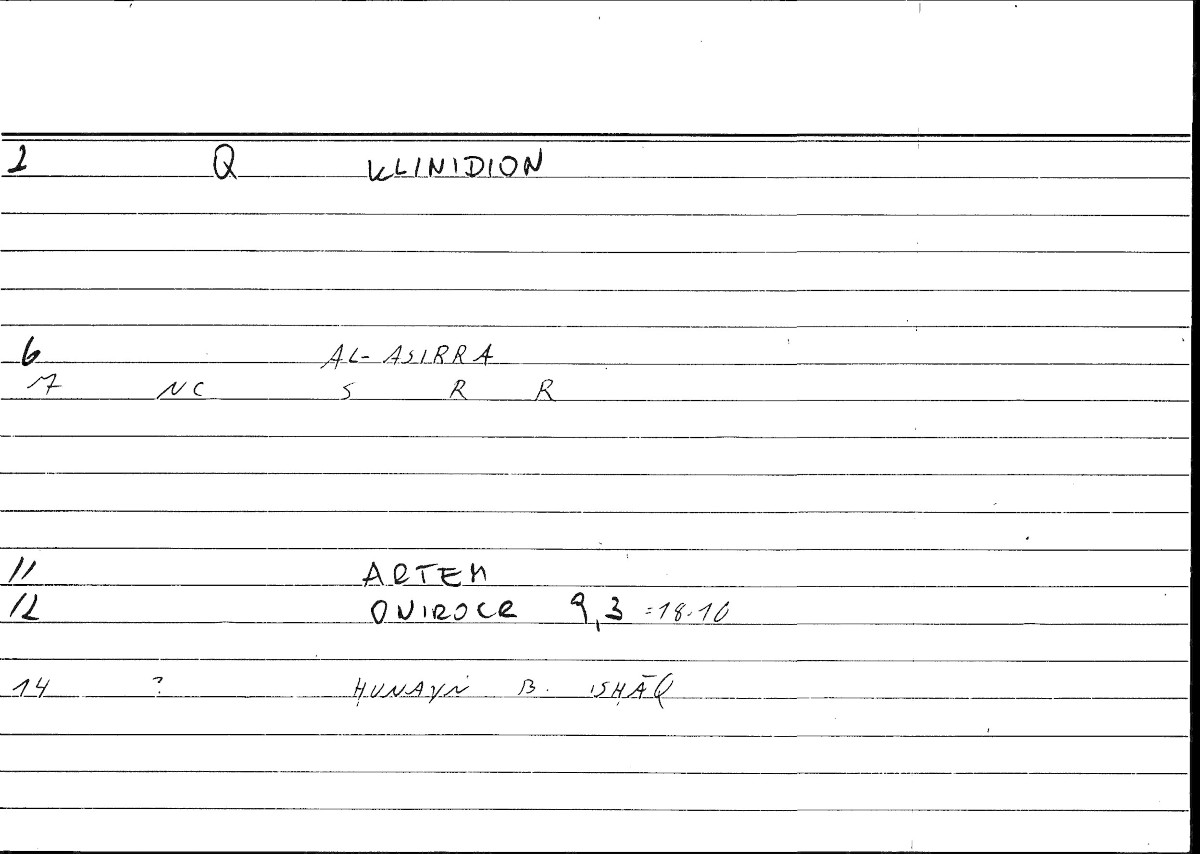 2 Q KLINIDION
6 AL-ASIRRA
7 NC S R R
11 ARTEM
12 ONIROCR 9,3 =18.10
14 ? ḤUNAYN B. ISḤĀQ